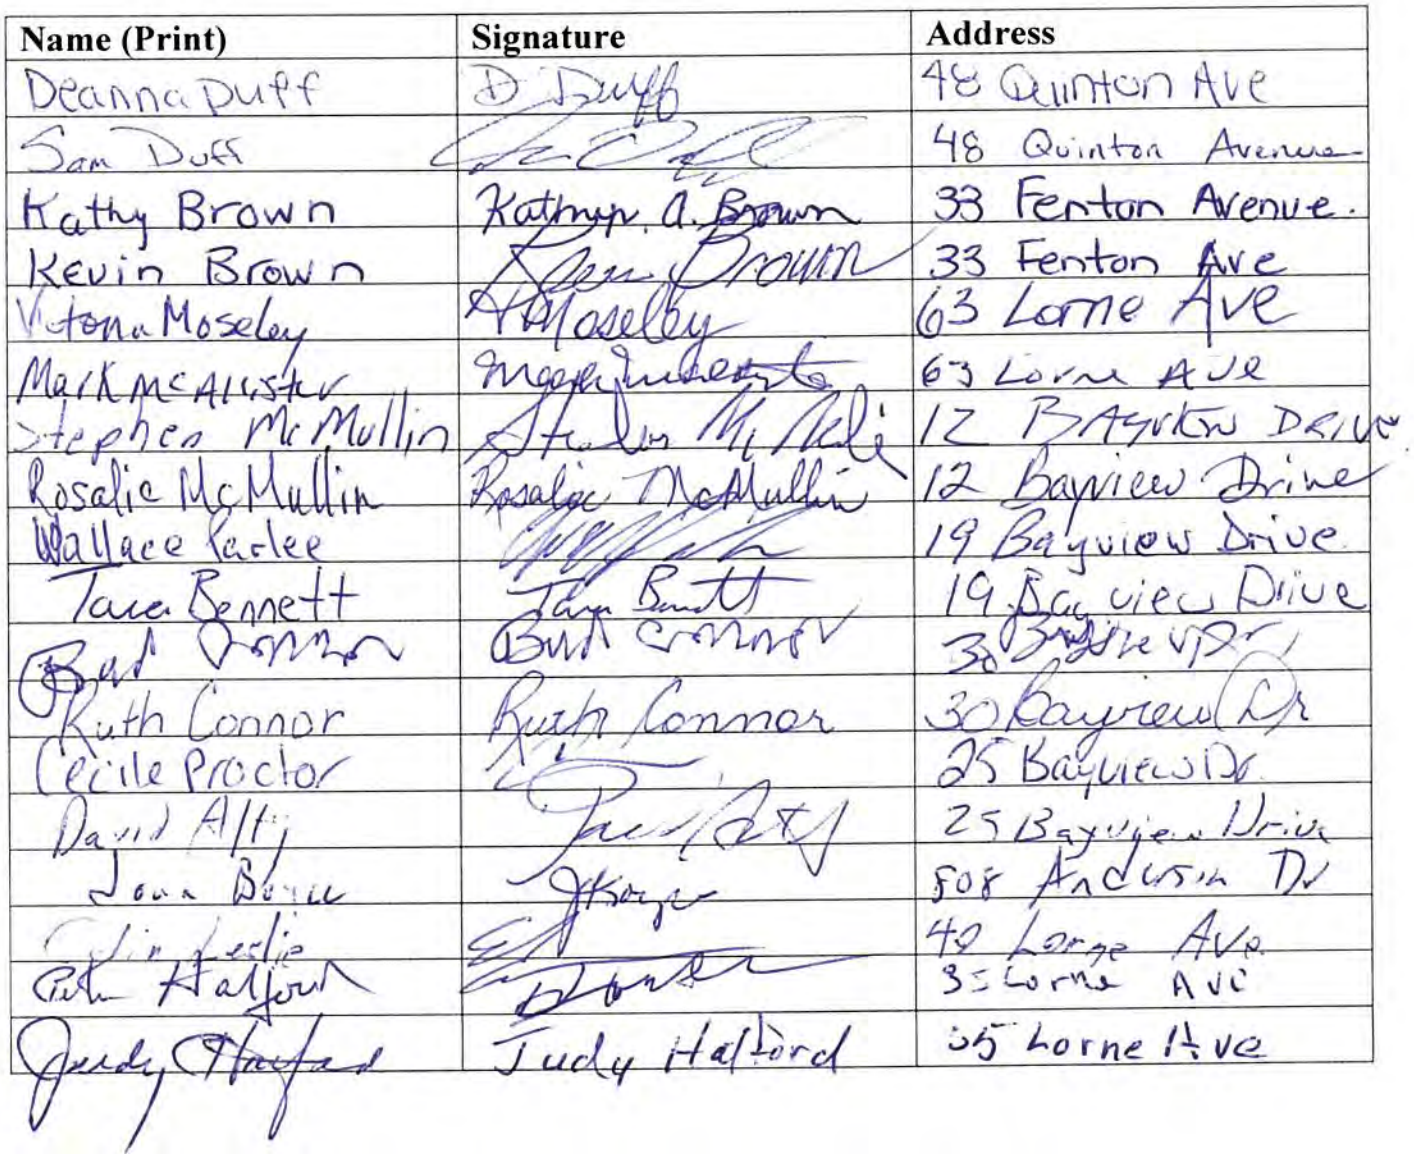 Name (Print) Signature Address
Deanna Duff D. Duff 48 Quinton Ave
Sam Duff 48 Quinton Avenue
Kathy Brown Kathryn A. Brown 33 Fenton Avenue.
Kevin Brown Brown 33 Fenton Ave
Moseley Moseley 63 Lorne Ave
Mark McAllister 63 Lorne Ave
Stephen McMullin 12 Bayview Drive
Rosalie McMullin Rosalie McMullin 12 Bayview Drive
Wallace Parlee 19 Bayview Drive
Tara Bennett Tara 19 Bayview Drive
Connor Connor 30
Ruth Connor Ruth Connor 30 Bayview Dr
Cecile Proctor 25 Bayview Dr.
David Alty 25 Bayview Drive
Joan Boyce 808 Anderson Dr
Colin Leslie 40 Lorne Ave
Halford Lorne Ave
Judy Halford Judy Halford 35 Lorne Ave